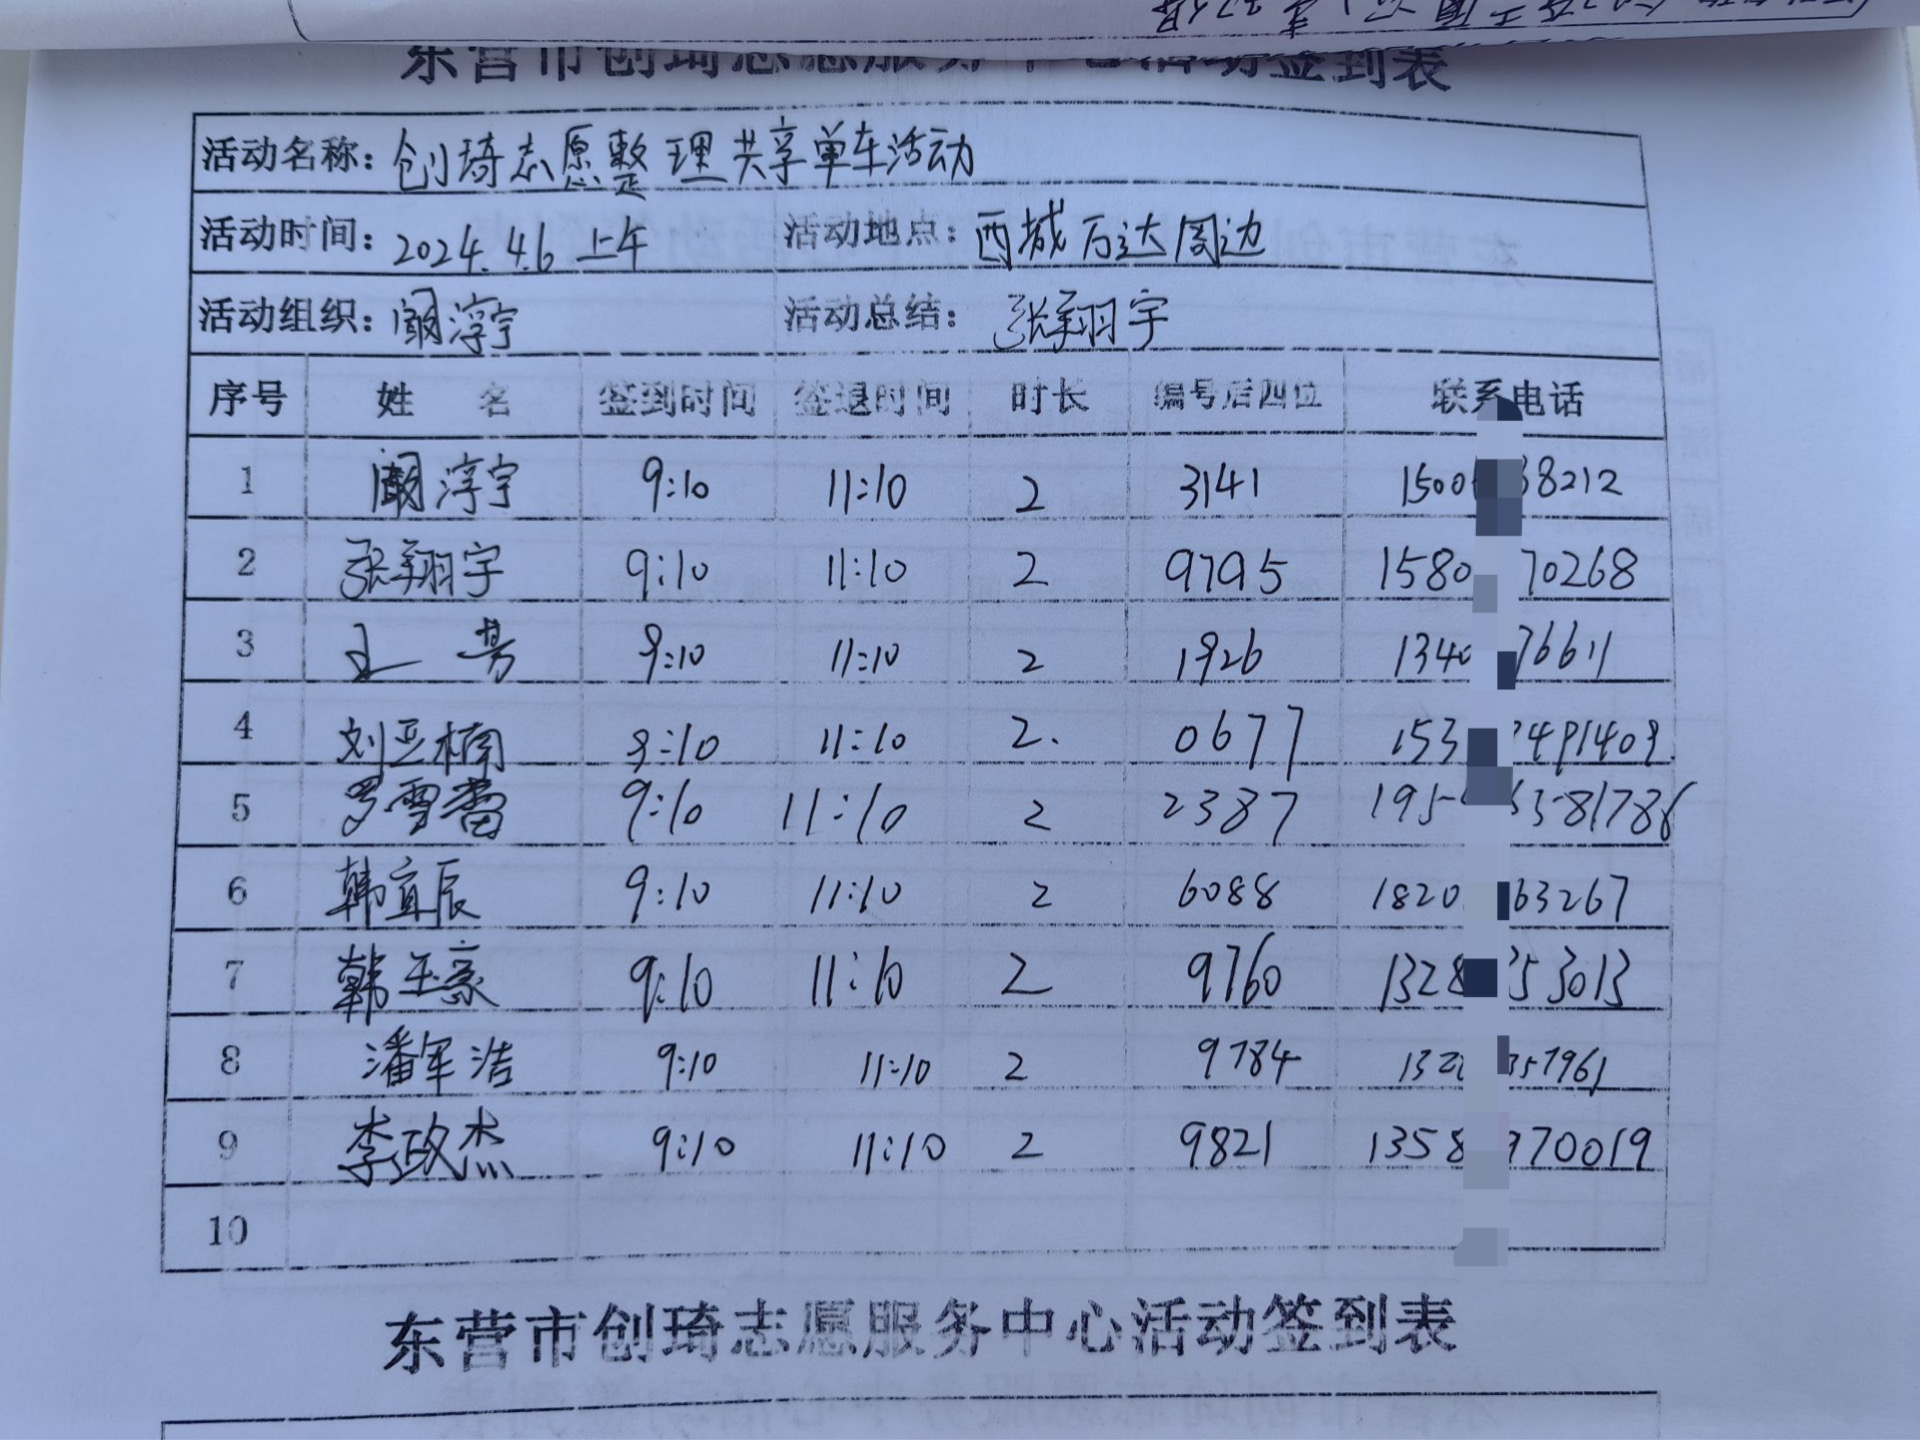 东营市创琦志愿服务中心活动签到表
活动名称：创琦志愿整理共享单车活动
活动时间：2024.4.6 上午 活动地点：西城万达周边
活动组织：阚淳宇 活动总结：张翔宇
序号 姓 名 签到时间 签退时间 时长 编号后四位 联系电话
1 阚淳宇 9:10 11:10 2 3141 1500 38212
2 张翔宇 9:10 11:10 2 9795 1580 70268
3 王 芳 9:10 11:10 2 1926 1340 76611
4 刘亚楠 9:10 11:10 2. 0677 153 491409
5 罗雪蕾 9:10 11:10 2 2387 195 581786
6 韩宜辰 9:10 11:10 2 6088 1820 63267
7 韩玉豪 9:10 11:10 2 9760 1328 53013
8 潘军洁 9:10 11:10 2 9784 132 357961
9 李政杰 9:10 11:10 2 9821 1358 970019
10
东营市创琦志愿服务中心活动签到表